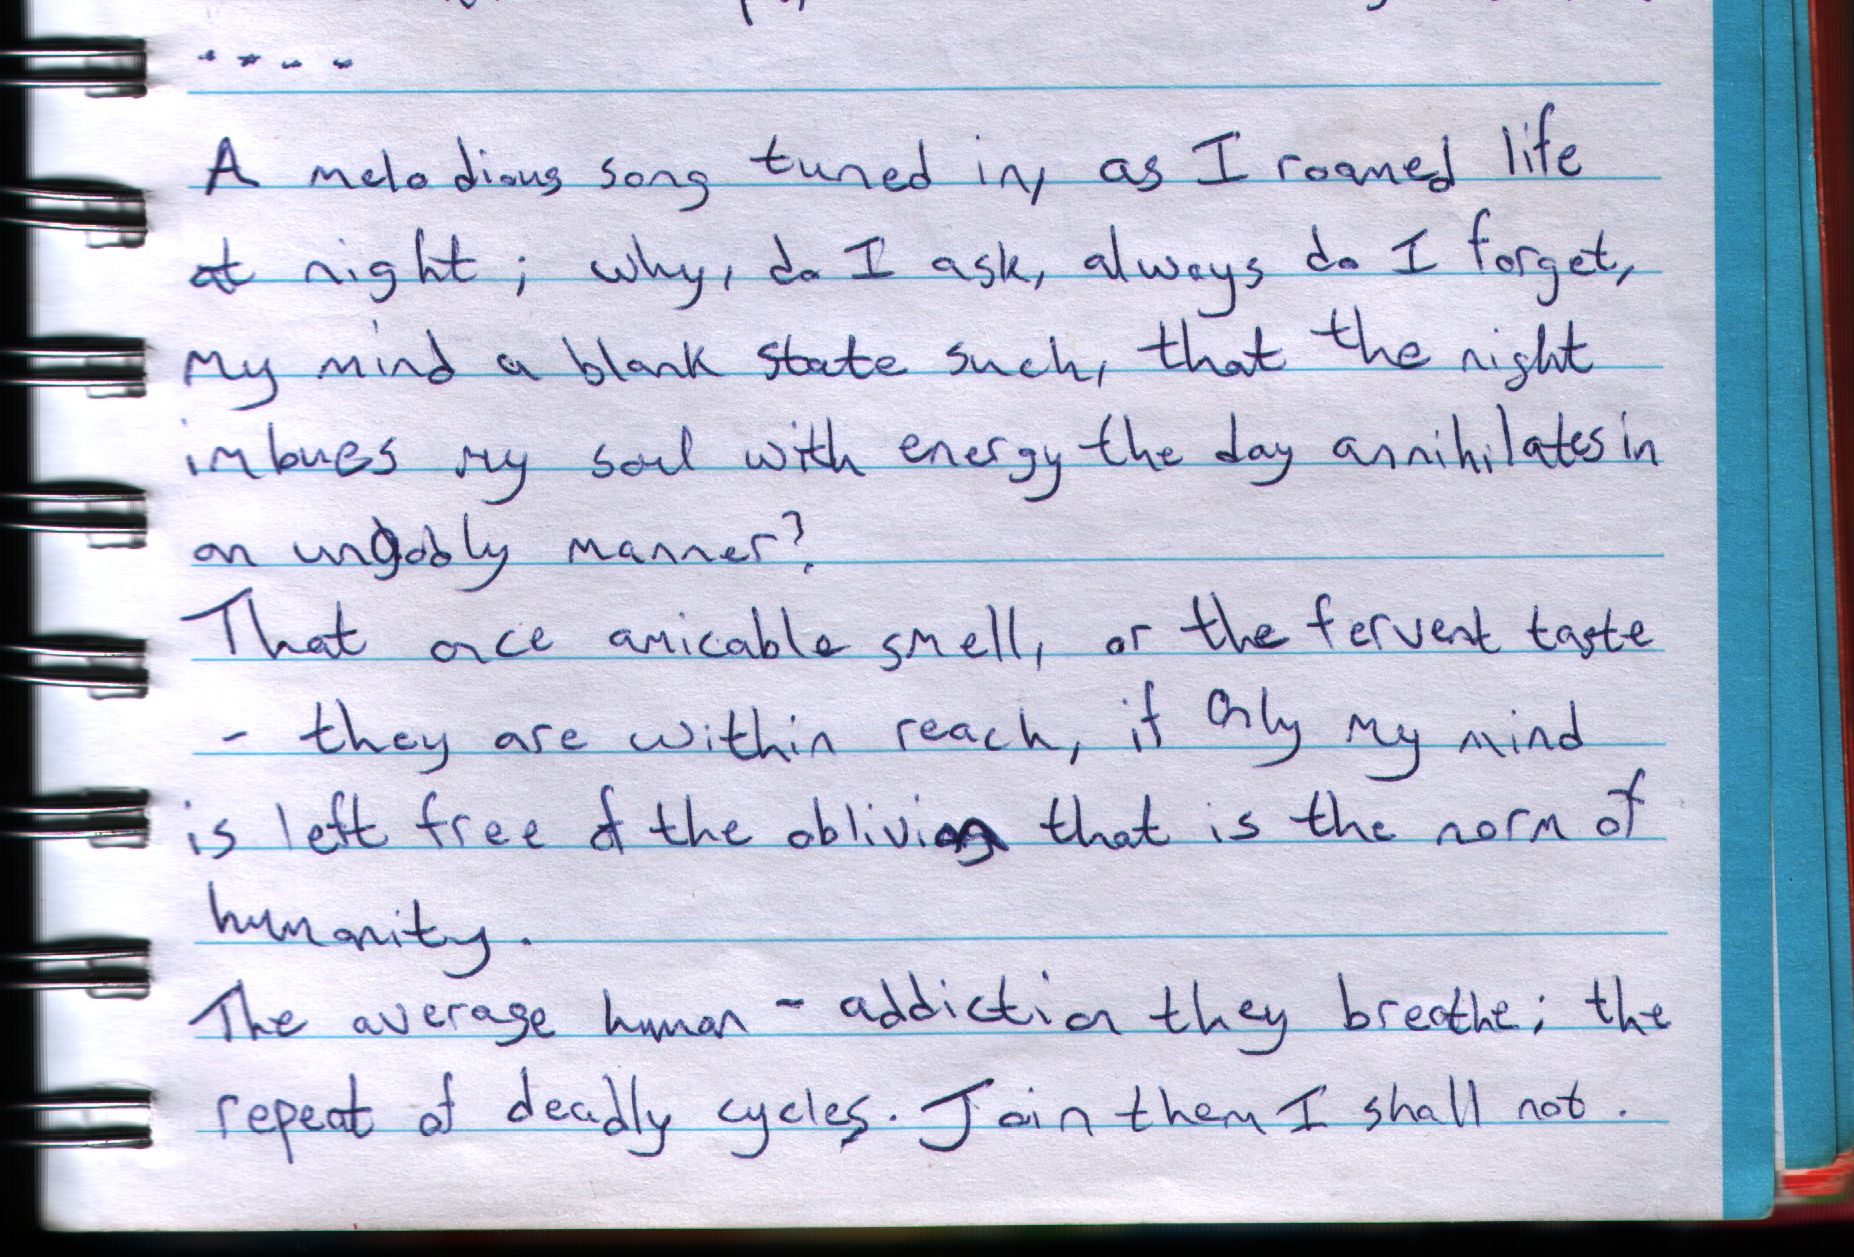 ....
A melodious song tuned in, as I roamed life
at night; why, do I ask, always do I forget,
My mind a blank state such, that the night
imbues my soul with energy the day annihilates in
an ungodly manner?
That once amicable smell, or the fervent taste
- they are within reach, if only my mind
is left free of the oblivion that is the norm of
humanity.
The average human - addiction they breathe; the
repeat of deadly cycles. Join them I shall not.